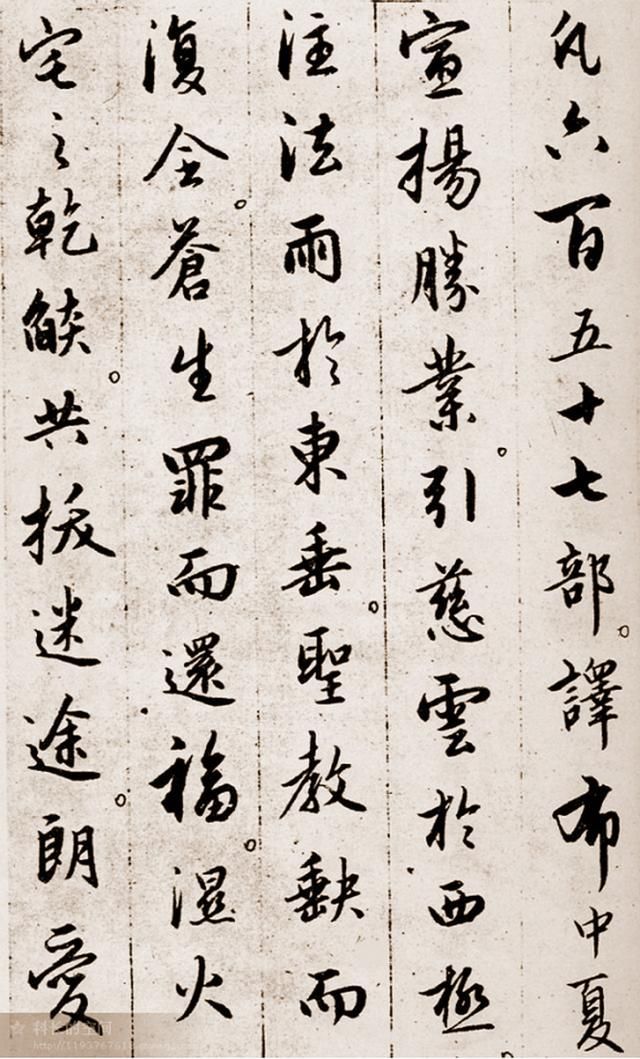 凡六百五十七部。譯布中夏
宣揚勝業。引慈雲於西極
注法雨於東垂。聖教缺而
復全。蒼生罪而還福。濕火
宅之乾燄。共拔迷途。朗愛
http://1193767618